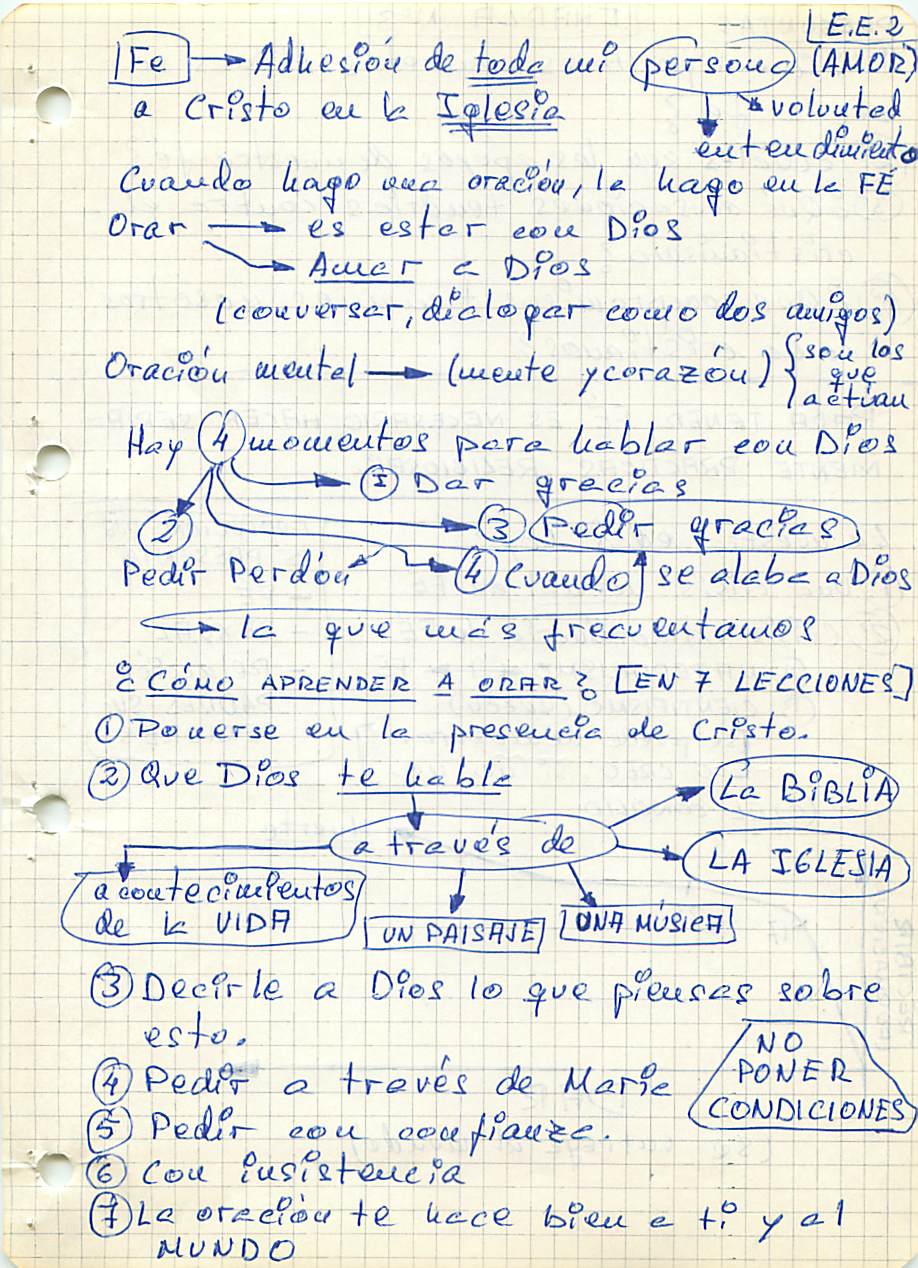 E.E.2
Fe → Adhesión de toda mi persona (AMOR)
a Cristo en la Iglesia
voluntad
entendimiento
Cuando hago una oración, la hago en la FÉ
Orar → es estar con Dios
→ Amar a Dios
(conversar, dialogar como dos amigos)
Oración mental → (mente y corazón) { son los
que
actúan
Hay 4 momentos para hablar con Dios
① Dar gracias
② ③ Pedir gracias
Pedir Perdón ④ Cuando se alaba a Dios
→ la que más frecuentamos
¿CÓMO APRENDER A ORAR? [EN 7 LECCIONES]
① Ponerse en la presencia de Cristo.
② Que Dios te hable
La BIBLIA
a través de
LA IGLESIA
acontecimientos
de la VIDA
UN PAISAJE UNA MÚSICA
③ Decirle a Dios lo que piensas sobre
esto.
NO
PONER
CONDICIONES
④ Pedir a través de María
⑤ Pedir con confianza.
⑥ Con insistencia
⑦ La oración te hace bien a ti y al
MUNDO